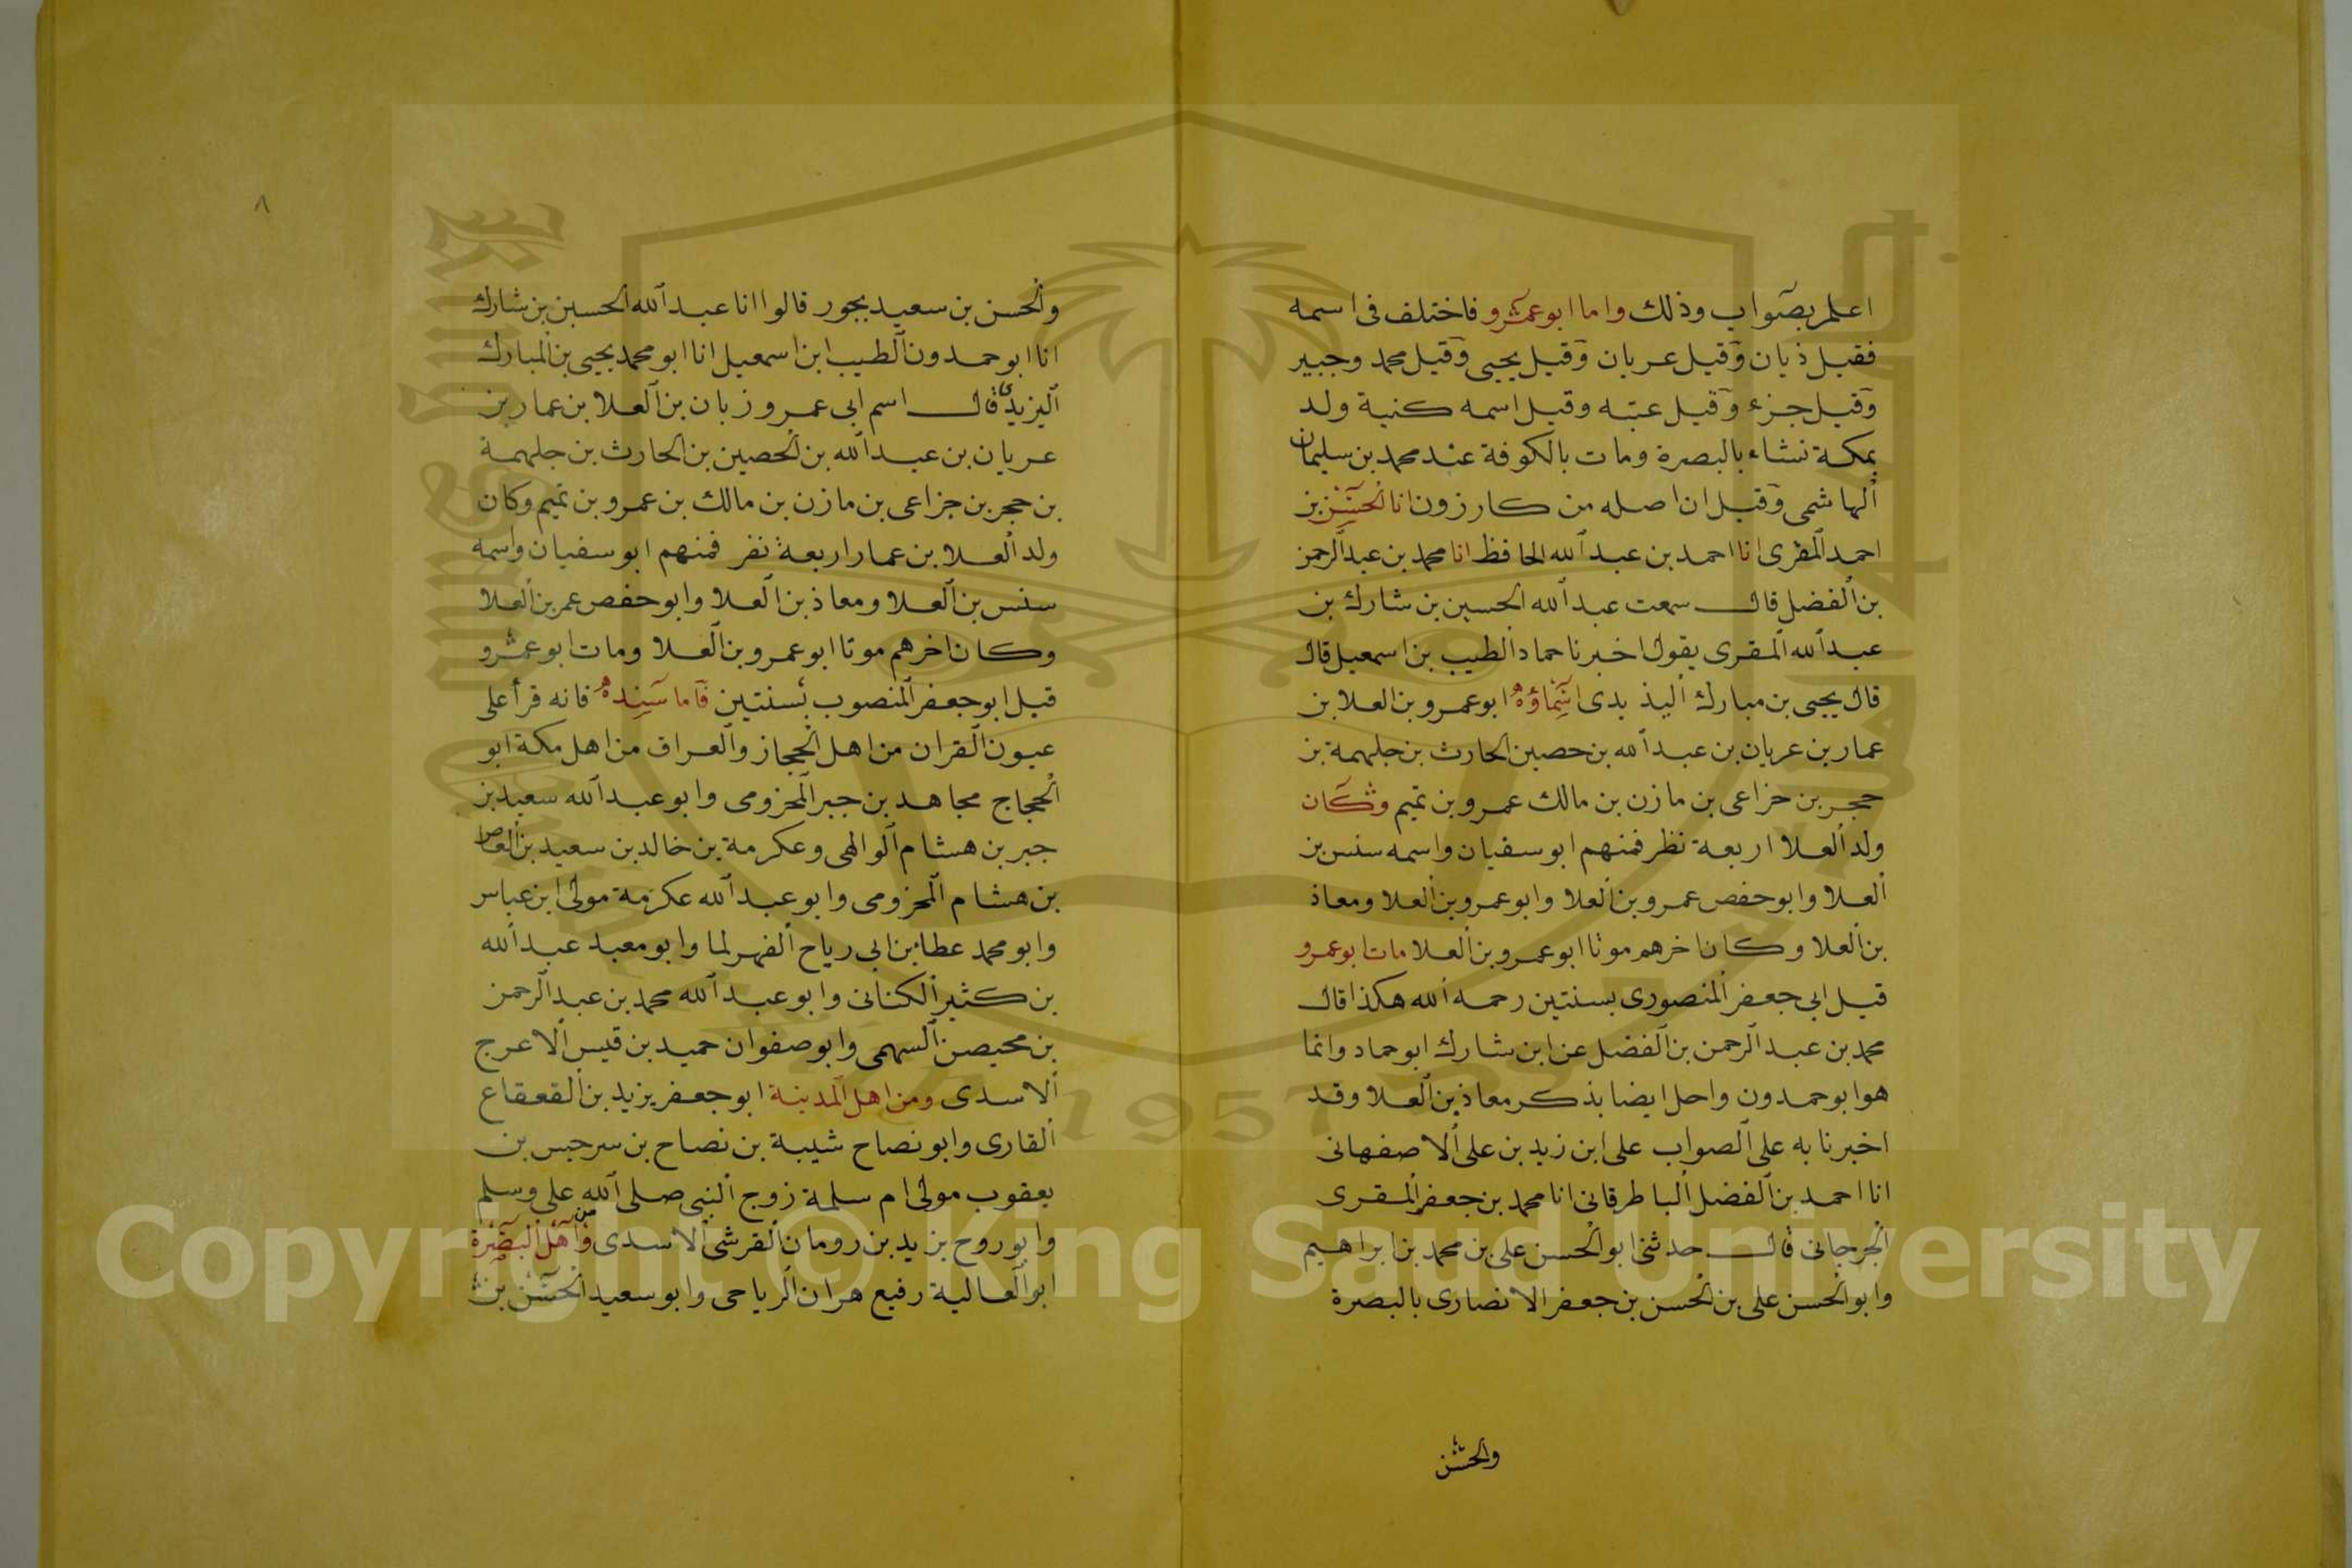 اعلم بصواب وذلك واما ابو عمرو فاختلف فى اسمه
فقيل ذيان وقيل عريان وقيل يحيى وقيل محمد وجبير
وقيل جزء وقيل عتبه وقيل اسمه كنية ولد
بمكة نشاء بالبصرة ومات بالكوفة عند محمد بن سليمان
الهاشمى وقيل ان اصله من كارزون انا الحسن بن
احمد المقرى انا احمد بن عبد الله الحافظ انا محمد بن عبد الرحمن
بن الفضل قال سمعت عبد الله الحسين بن شارك بن
عبد الله المقرى يقول اخبرنا حماد الطيب بن اسمعيل قال
قال يحيى بن مبارك اليذ يدى اسماؤه ابو عمرو بن العلا بن
عمار بن عريان بن عبد الله بن حصين الحارث بن جلهمة بن
حجر بن خزاعى بن مازن بن مالك عمرو بن تميم وكان
ولد العلا اربعة نظر فمنهم ابو سفيان واسمه سنس بن
العلا وابو حفص عمرو بن العلا وابو عمرو بن العلا ومعاذ
بن العلا وكان اخرهم موتا ابو عمرو بن العلا مات ابو عمرو
قيل ابى جعفر المنصورى بسنتين رحمه الله هكذا قال
محمد بن عبد الرحمن بن الفضل عن ابن شارك ابو حماد وانما
هو ابو حمدون واحل ايضا بذكر معاذ بن العلا وقد
اخبرنا به على الصواب على ابن زيد بن على الاصفهانى
انا احمد بن الفضل الباطرقانى انا محمد بن جعفر المقرى
الجرجانى قال حدثنى ابو الحسن على بن محمد بن ابراهيم
وابو الحسن على بن الحسن بن جعفر الانصارى بالبصرة
والحسن
٨
والحسن بن سعيد بجور قالوا انا عبد الله الحسين بن شارك
انا ابو حمدون الطيب ابن اسمعيل انا ابو محمد يحيى بن المبارك
اليزيدى قال اسم ابى عمرو زبان بن العلا بن عمار بن
عريان بن عبد الله بن الحصين بن الحارث بن جلهمة
بن حجر بن جزاعى بن مازن بن مالك بن عمرو بن تميم وكان
ولد العلا بن عمار اربعة نفر فمنهم ابو سفيان واسمه
سنس بن العلا ومعاذ بن العلا وابو حفص عمر بن العلا
وكان اخرهم موتا ابو عمرو بن العلا ومات ابو عمرو
قبل ابو جعفر المنصوب بسنتين فاما سنده فانه قرأ على
عيون القران من اهل الحجاز والعراق من اهل مكة ابو
الحجاج مجاهد بن جبر المخزومى وابو عبد الله سعيد بن
جبر بن هشام الوالهى وعكرمة بن خالد بن سعيد بن العاص
بن هشام المخزومى وابو عبد الله عكرمة مولى ابن عباس
وابو محمد عطا بن ابى رياح الفهر لما وابو معبد عبد الله
بن كثير الكنانى وابو عبد الله محمد بن عبد الرحمن
بن محيصن السهمى وابو صفوان حميد بن قيس الاعرج
الاسدى ومن اهل المدينة ابو جعفر يزيد بن القعقاع
القارى وابو نصاح شيبة بن نصاح بن سرجس بن
يعقوب مولى ام سلمة زوج النبى صلى الله على وسلم
وابو روح يزيد بن رومان القرشى الاسدى ومن اهل البصرة
ابو العالية رفيع هران الرياحى وابو سعيد الحسن بن
1957
Copyright © King Saud University